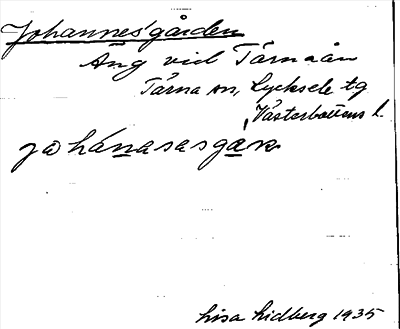 Johannes'gården
Äng vid Tärnaån
Tärna sn, Lycksele tg
Västerbottens l.
johánasasgáṟn
Lisa Lidberg 1935